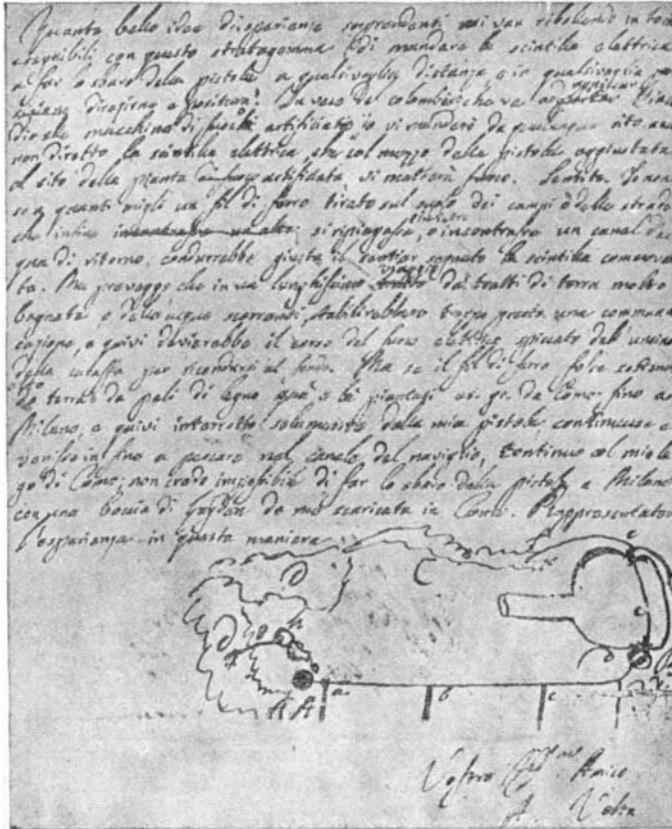 Quante belle idee di sperienze sorprendenti mi van ribollendo in testa
eseguibili con questo stratagemma di mandare la scintilla elettrica
a far lo sbaro della pistola a qualsivoglia distanza e in qualsivoglia
direzione e positura! In vece del colombino che va ad appiccar
macchina di fuochi artifiziato io vi manderò da qualunque sito
non diretto la scintilla elettrica che col mezzo della pistola aggiustata
al sito della pianta artifiziata vi metterà fuoco. Sentite. Io non
so a quanti migli un fil di ferro tirato sul suolo dei campi o della strada
che infine si ripiegasse indietro, o incontrasse un canal d'ac
qua di ritorno, condurrebbe giusta il sentier segnato la scintilla commova
ta. Ma preveggo che in un lunghissimo viaggio de' tratti di terra molto
bagnata, o delle acque scorrenti, stabilirebbero troppo presto una comuni
cazione, e quivi devierebbe il corso del fuoco elettrico spiccato dall' uncino
della caraffa per ricondursi al fondo. Ma se il fil di ferro fosse sostenuto
da terra da pali di legno qua e là piantati ex. gr. da Como fino a
Milano, e quivi interrotto solamente dalla mia pistola continuasse e
venisse in fine a pescare nel canale del naviglio, continuo col mio la
go di Como; non credo impossibile di far lo sbaro della pistola a Milano
con una boccia di Leyden da me scaricata in Como. Rappresentatevi
l'esperienza in questa maniera
C
D
A A
a b c
Vostro Amico
A. Volta